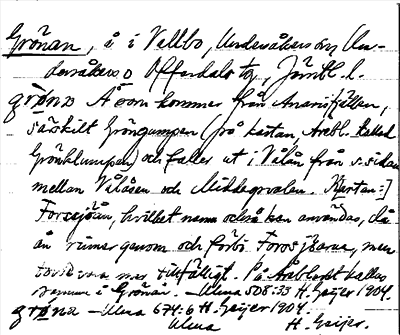 Grönan, å i Vallbo, Undersåkers sn, Un-
dersåkers o Offerdals tg, Jämtl. l.
grøna Å som kommer från Anarisfjällen,
särskilt Gröngumpen (på kartan, Arebl. kallad
Grönklumpen) och faller ut i Vålån från s. sidan
mellan Vålåsen och Middagsvalen. Kartan:]
Forssjöån, hvilket namn också kan användas, då
ån rinner genom och förbi Forssjöarna, men
vara mer tillfälligt. På Arebladet kallas
i Grönån. Ulma 508:33 H. Geijer 1904.
grøna Ulma 674:6 H. Geijer 1904.
Ulma H. Geijer.